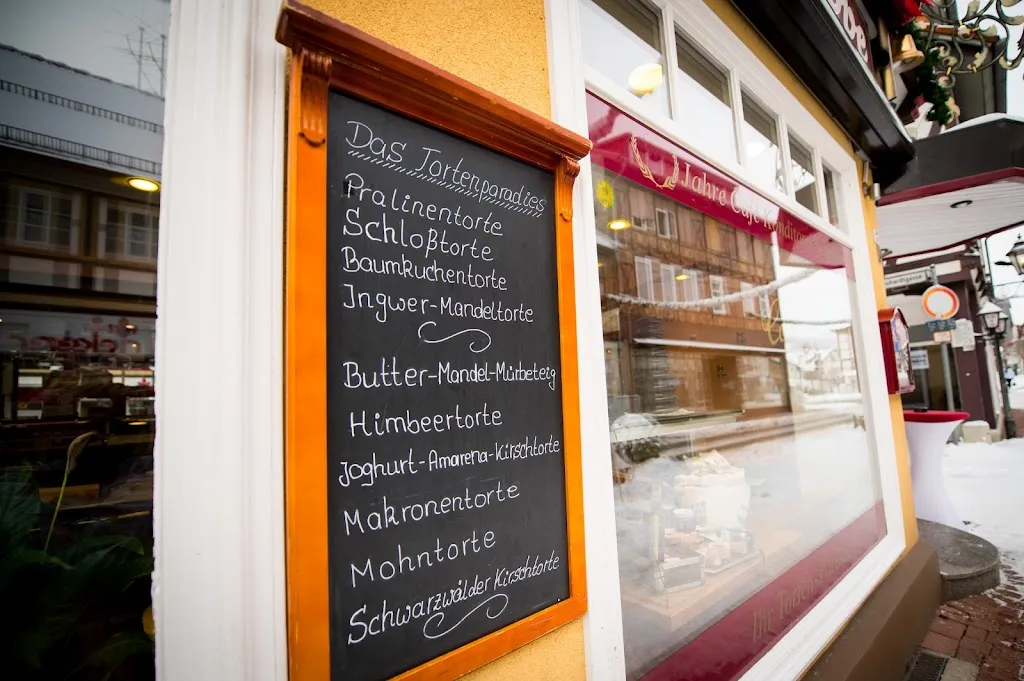 Das Tortenparadies
Pralinentorte
Schloßtorte
Baumkuchentorte
Ingwer-Mandeltorte
Butter-Mandel-Mürbeteig
Himbeertorte
Joghurt-Amarena-Kirschtorte
Makronentorte
Mohntorte
Schwarzwälder Kirschtorte
Jahre Café Konditor
Ihr